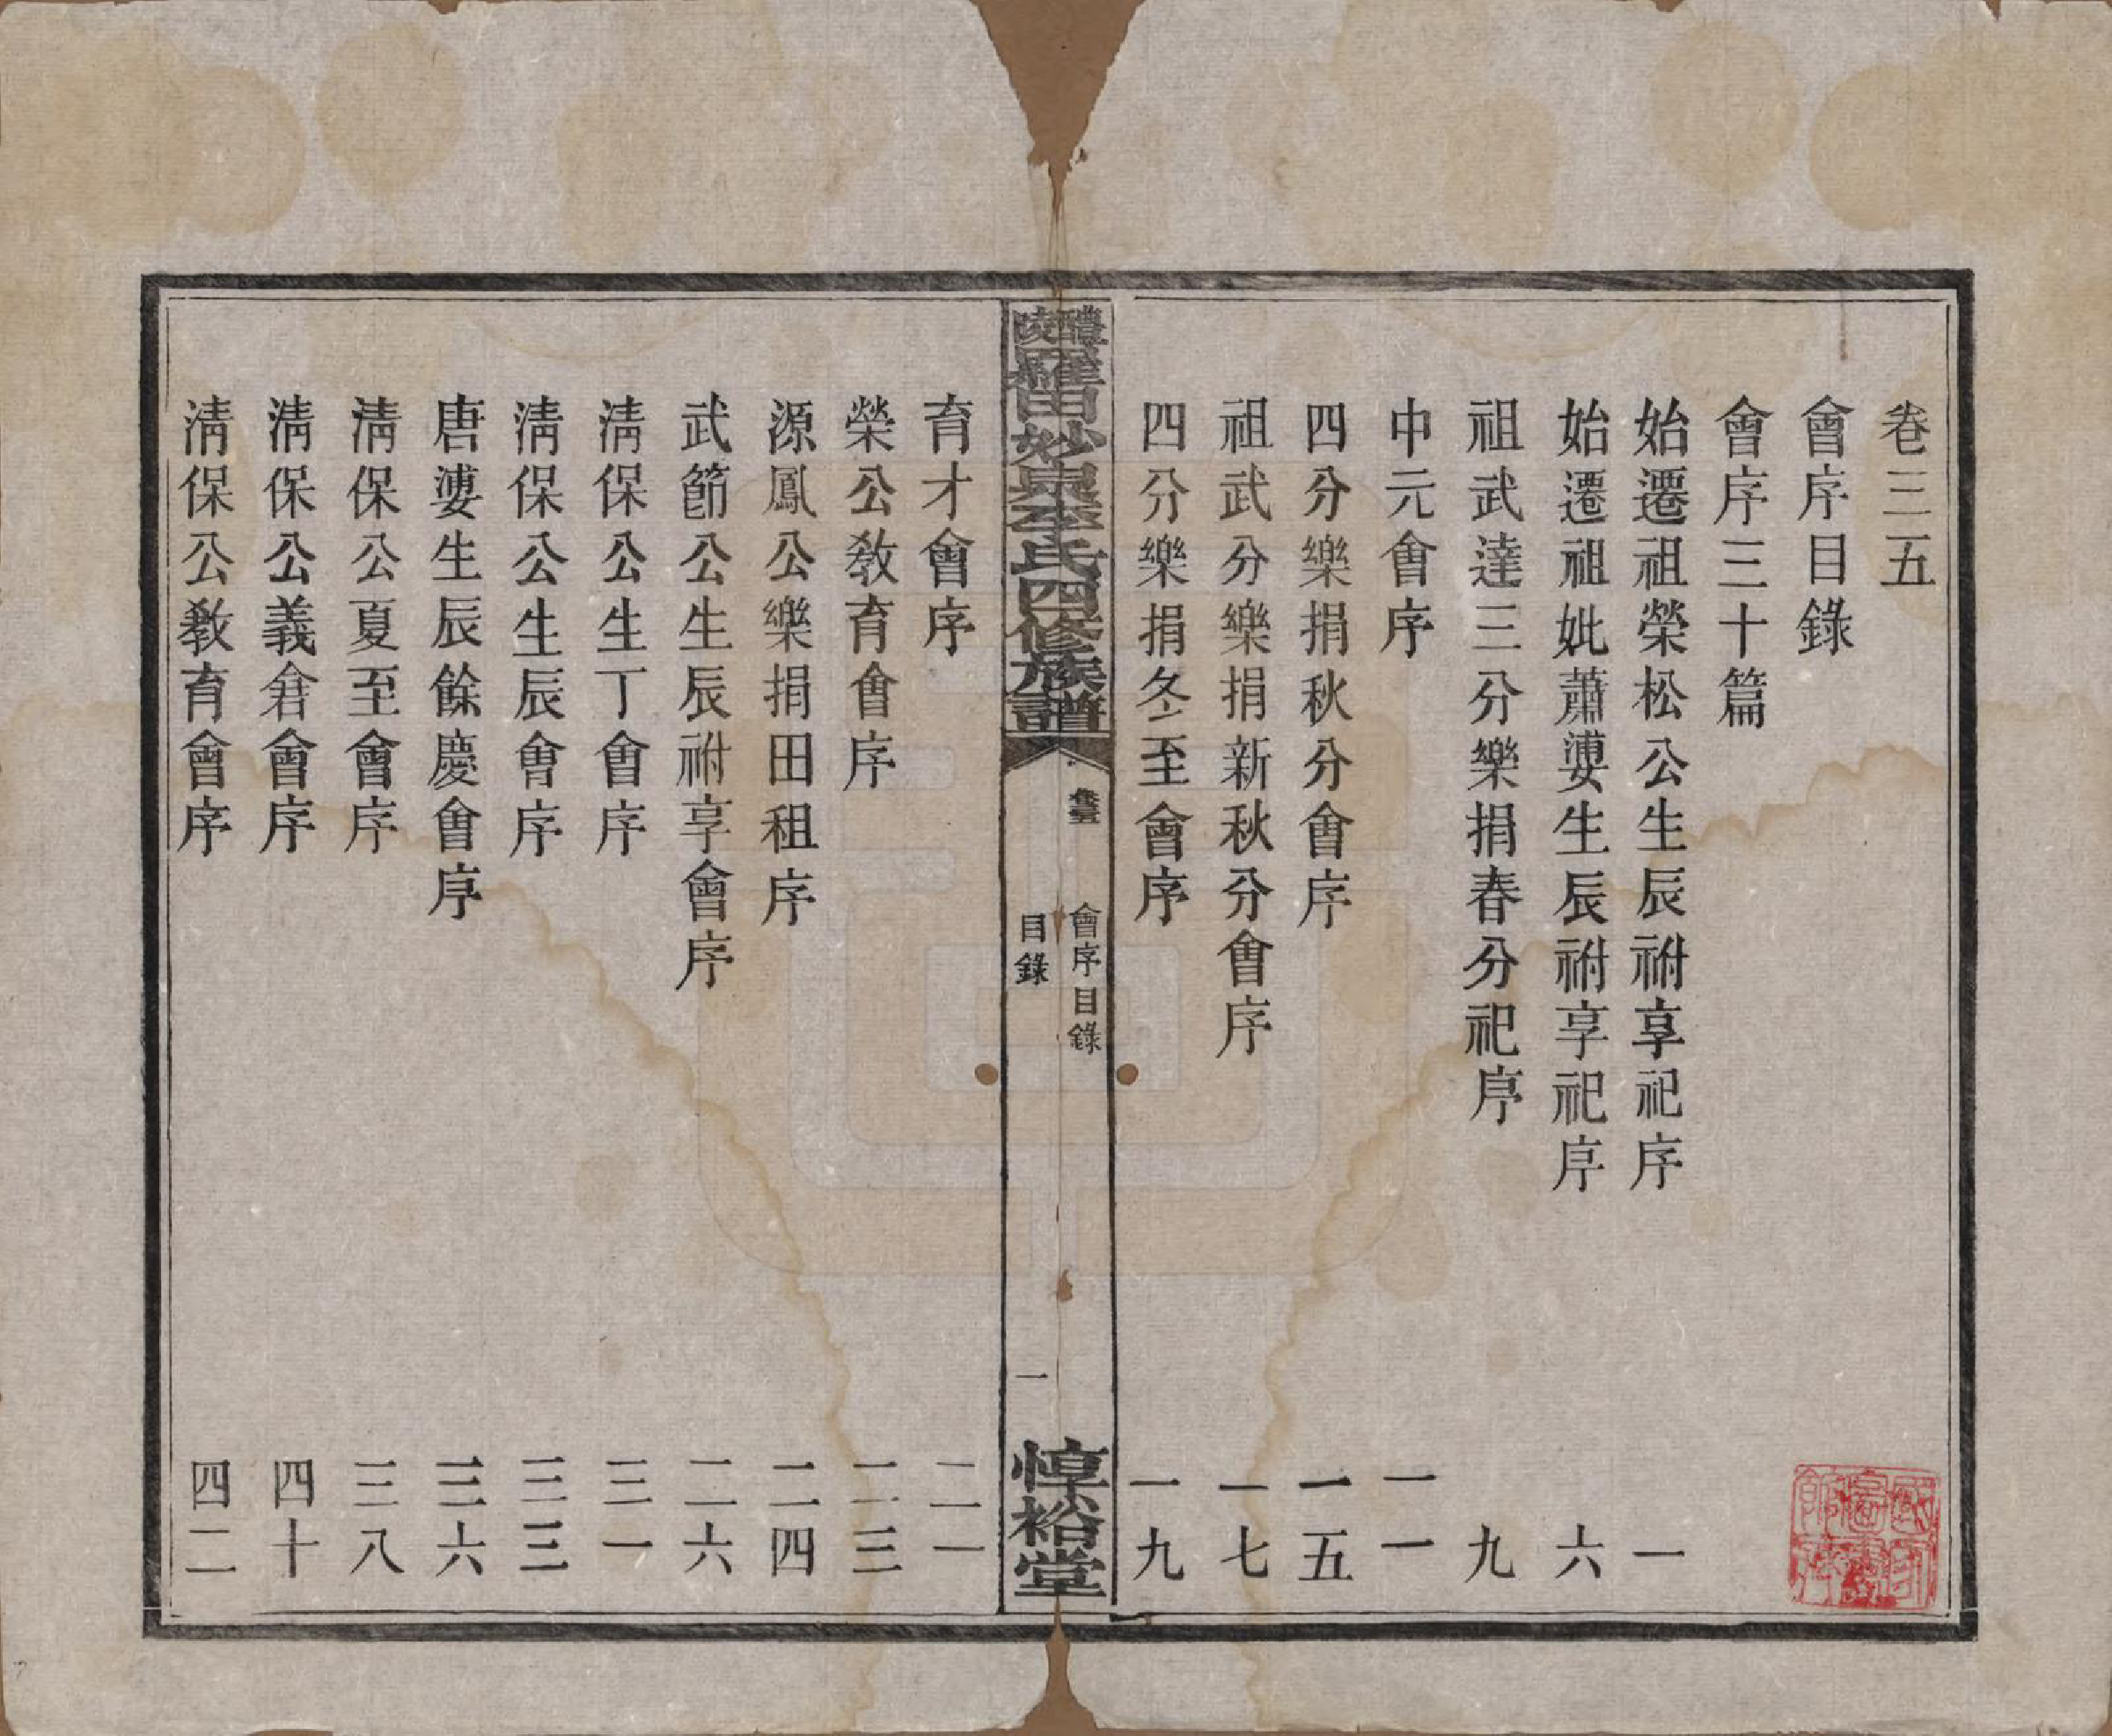 卷三五
會序目錄
會序三十篇
始遷祖榮松公生辰祔享祀序 一
始遷祖妣蕭𡢃生辰祔享祀序 六
祖武達三分樂捐春分祀序 九
中元會序 一一
四分樂捐秋分會序 一五
祖武分樂捐新秋分會序 一七
四分樂捐冬至會序 一九
醴陵羅田妙泉李氏四修族譜
卷三五
會序目錄
目錄
一
惇裕堂
育才會序 二一
榮公教育會序 二三
源鳳公樂捐田租序 二四
武節公生辰祔享會序 二六
清保公生丁會序 三一
清保公生辰會序 三三
唐𡢃生辰餘慶會序 三六
清保公夏至會序 三八
清保公義倉會序 四十
清保公教育會序 四二